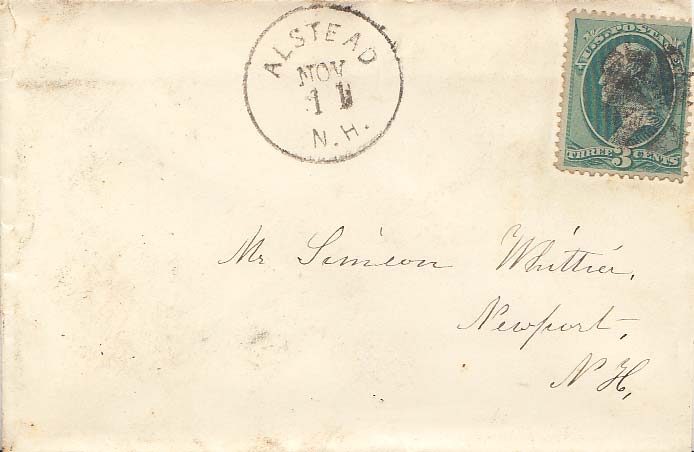 ALSTEAD
NOV
11
N.H.
THREE 3 CENTS
Mr Simeon Whittier,
Newport,
N H,